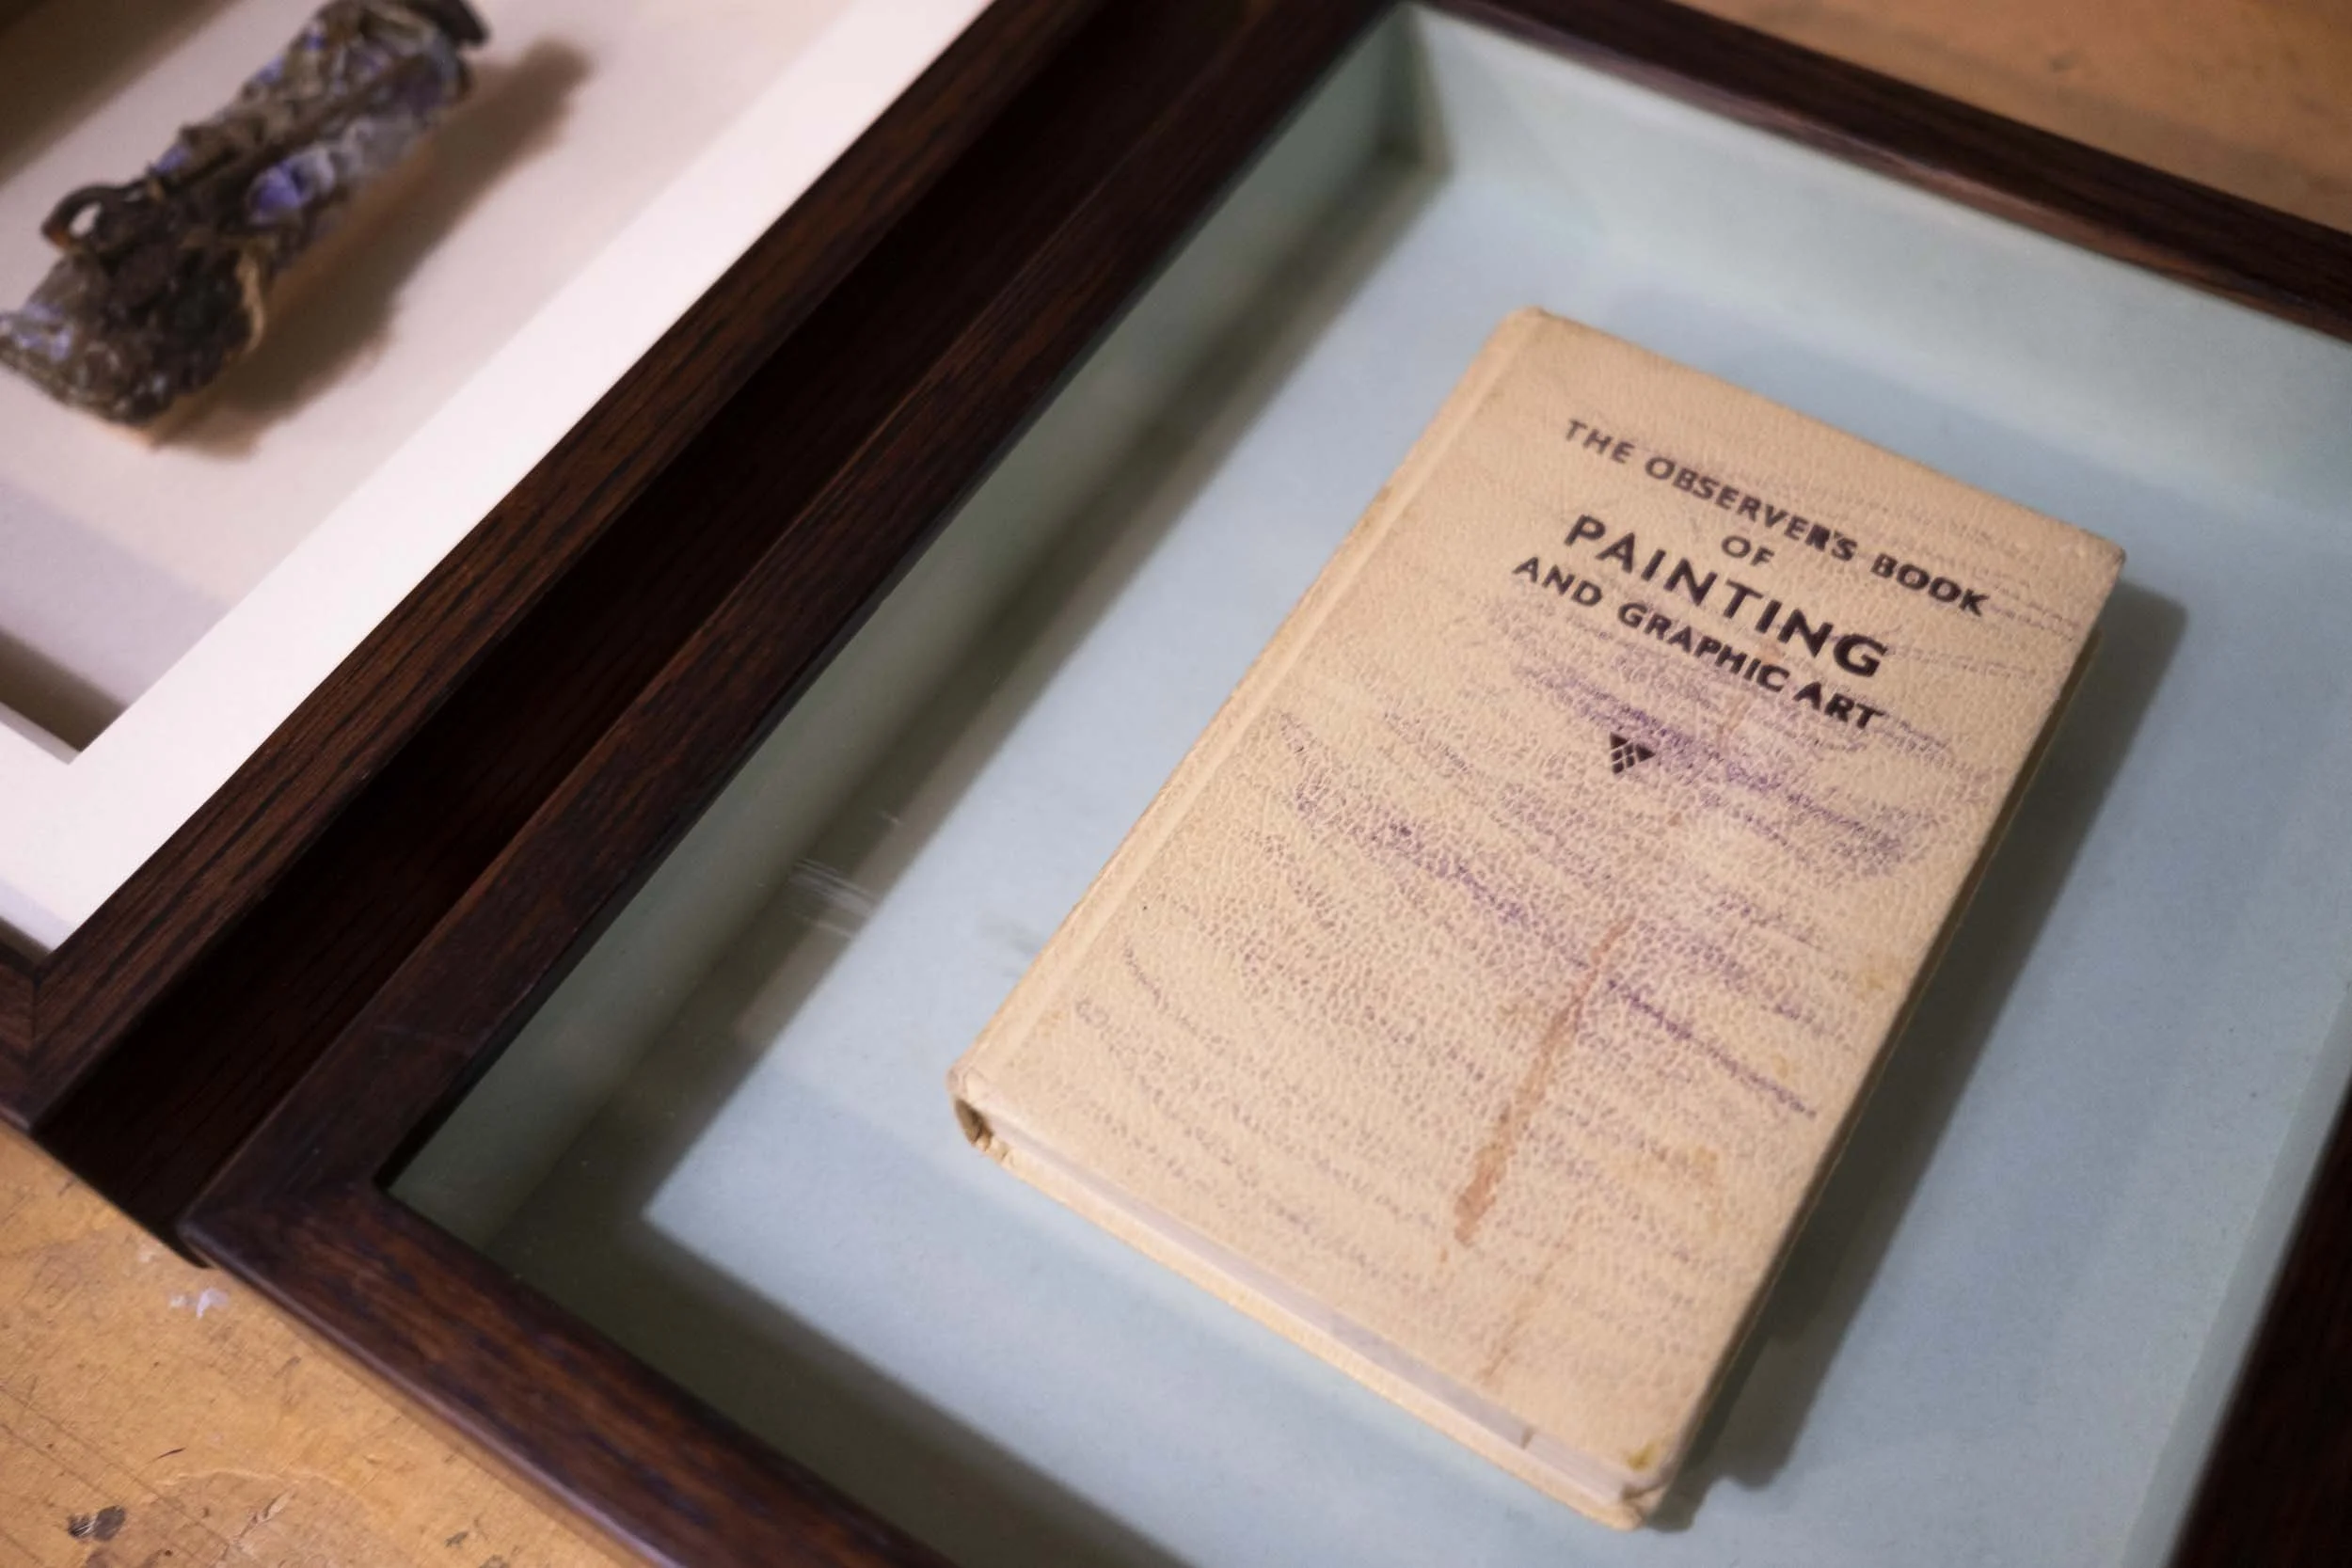 THE OBSERVER'S BOOK
OF
PAINTING
AND GRAPHIC ART